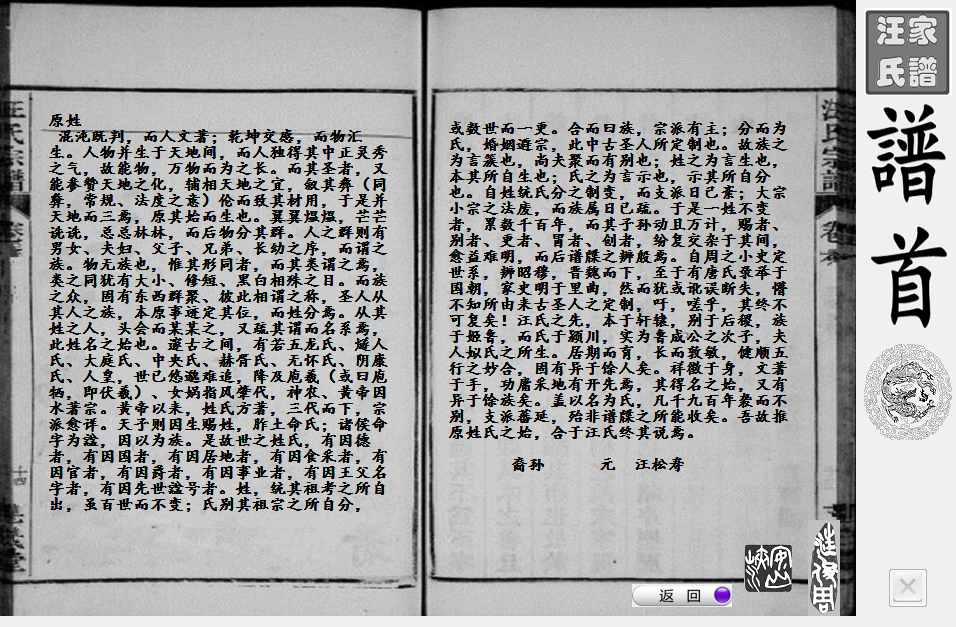 原姓
混沌既判，而人文著；乾坤交感，而物汇
生。人物并生于天地间，而人独得其中正灵秀
之气，故能物，万物而为之长。而其圣者，又
能参赞天地之化，辅相天地之宜，叙其彝（同
彝，常规、法度之意）伦而致其材用，于是并
天地而三焉，原其始而生也。翼翼煴煴，芒芒
诜诜，总总林林，而后物分其群。人之群则有
男女、夫妇、父子、兄弟、长幼之序，而谓之
族。物无族也，惟其形同者，而其类谓之焉，
类之同犹有大小、修短、黑白相殊之目。而族
之众，固有东西群聚、彼此相谓之称，圣人从
其人之族，本原事迹定其位，而姓分焉。从其
姓之人，头会而某某之，又疏其谓而名系焉，
此姓名之始也。邃古之间，有若五龙氏、燧人
氏、大庭氏、中央氏、赫胥氏、无怀氏、阴康
氏、人皇，世已悠邈难追，降及庖羲（或曰庖
牺，即伏羲）、女娲指风肇代，神农、黄帝因
水著宗。黄帝以来，姓氏方著，三代而下，宗
派愈详。天子则因生赐姓，胙土命氏；诸侯命
字为谥，因以为族。是故世之姓氏，有因德
者，有因国者，有因居地者，有因食采者，有
因官者，有因爵者，有因事业者，有因王父名
字者，有因先世谥号者。姓，统其祖考之所自
出，虽百世而不变；氏别其祖宗之所自分，
或数世而一更。合而曰族，宗派有主；分而为
氏，婚姻避宗，此中古圣人所定制也。故族之
为言簇也，尚夫聚而有别也；姓之为言生也，
本其所自生也；氏之为言示也，示其所自分
也。自姓统氏分之制变，而支派日已紊；大宗
小宗之法废，而族属日已疏。于是一姓不变
者，累数千百年，而其子孙动且万计，赐者、
别者、更者、冒者、创者，纷复交杂于其间，
愈益难明，而后谱牒之辨殷焉。自周之小史定
世系，辨昭穆，晋魏而下，至于有唐氏录举于
国朝，家史明于里曲，然而犹或讹误断失，懵
不知所由来古圣人之定制，吁，嗟乎，其终不
可复矣！汪氏之先，本于轩辕，别于后稷，族
于姬鲁，而氏于颍川，实为鲁成公之次子，夫
人姒氏之所生。居期而育，长而敦敏，健顺五
行之妙合，固有异于馀人矣。祥徵于身，文著
于手，功庸采地有开先焉，其得名之始，又有
异于馀族矣。盖以名为氏，几千九百年袭而不
别，支派蕃延，殆非谱牒之所能收矣。吾故推
原姓氏之始，合于汪氏终其说焉。
裔孙 元 汪松寿
返 回
汪家
氏譜
譜
首